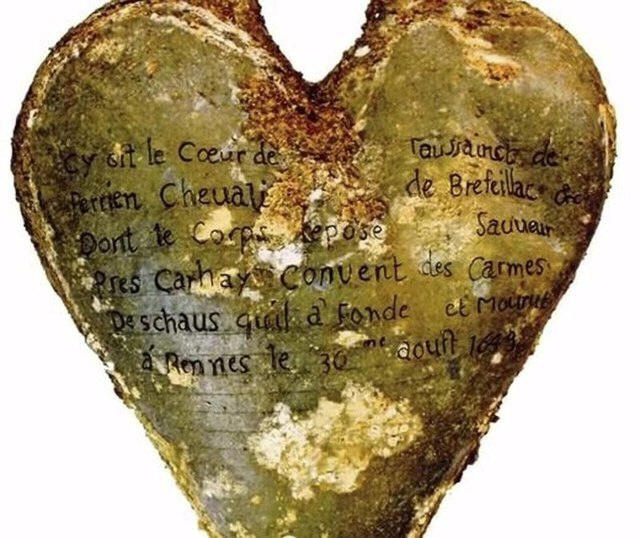 Cy git le Cœur de Toussainct de
Perrien Cheuali de Brefeillac &c
Dont le Corps Repose Sauueur
Pres Carhay Convent des Carmes
Deschaus quil à Fonde et Mourut
á Rennes le 30me aoust